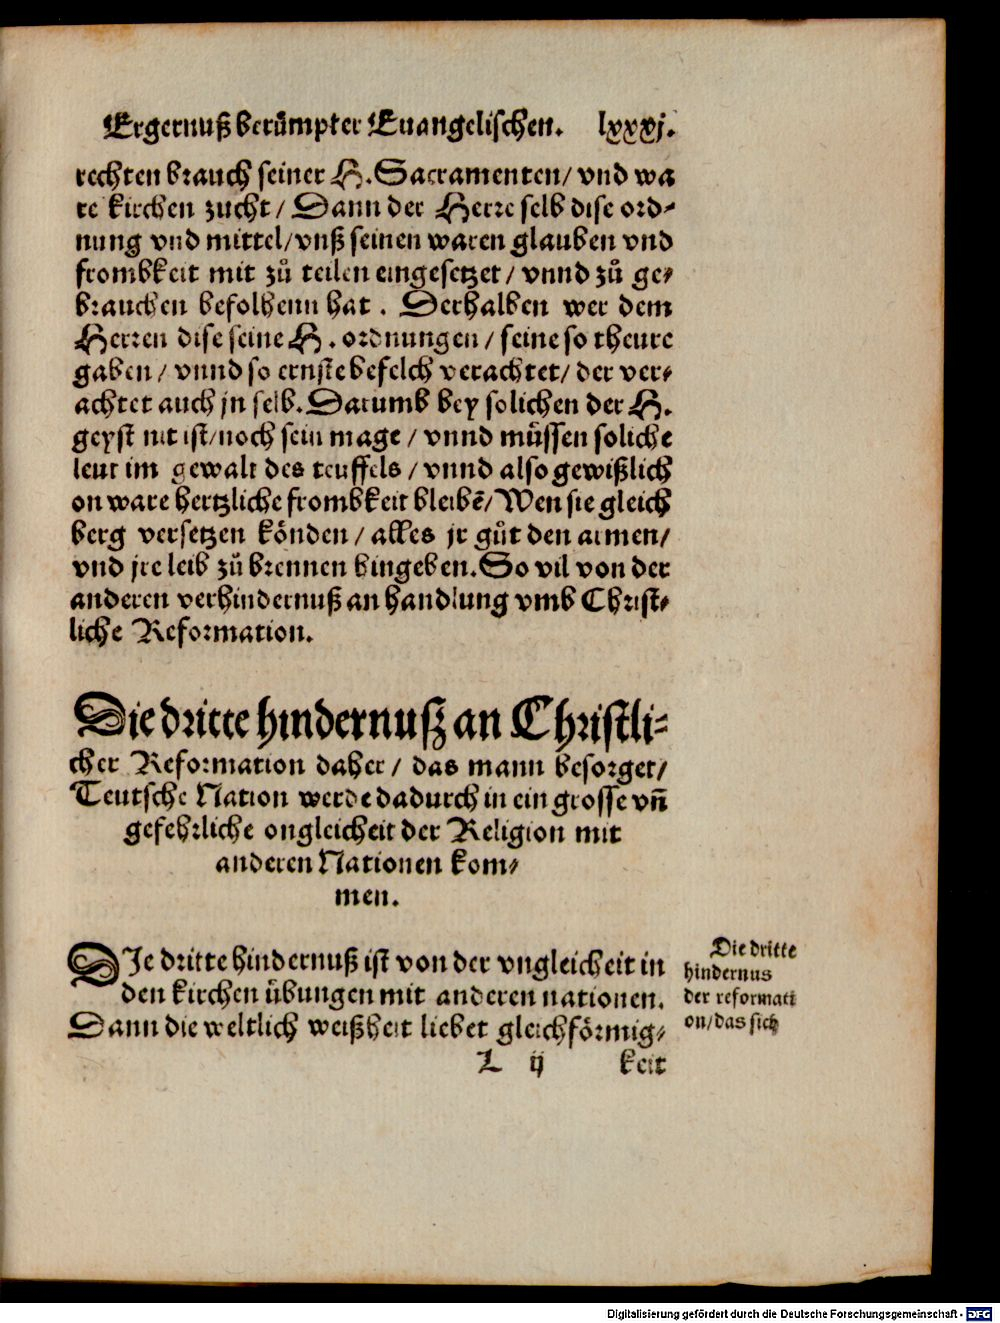 Ergernuß berůmpter Euangelischen. lxxxj.
rechten brauch seiner H. Sacramenten/ vnd wa
re kirchen zucht/ Dann der Herre selb dise ord⸗
nung vnd mittel/ vnß seinen waren glauben vnd
frombkeit mit zů teilen eingesetzet/ vnnd zů ge⸗
brauchen befolhenn hat. Derhalben wer dem
Herren dise seine H. ordnungen/ seine so theure
gaben/ vnnd so ernste befelch verachtet/ der ver⸗
achtet auch jn selb. Darumb bey solichen der H.
geyst nit ist/ noch sein mage/ vnnd müssen soliche
leut im gewalt des teuffels/ vnnd also gewißlich
on ware hertzliche frombkeit bleibē/ Wen sie gleich
berg versetzen könden/ alles jr gůt den armen/
vnd jre leib zů brennen hingeben. So vil von der
anderen verhindernuß an handlung vmb Christ⸗
liche Reformation.
Die dritte hindernuß an Christli⸗
cher Reformation daher/ das mann besorget/
Teutsche Nation werde dadurch in ein grosse vñ
gefehrliche ongleicheit der Religion mit
anderen Nationen kom⸗
men.
DJe dritte hindernuß ist von der vngleicheit in
den kirchen übungen mit anderen nationen.
Dann die weltlich weißheit liebet gleichförmig⸗
Die dritte
hindernus
der reformati
on/ das sich
L ij keit
Digitalisierung gefördert durch die Deutsche Forschungsgemeinschaft - DFG